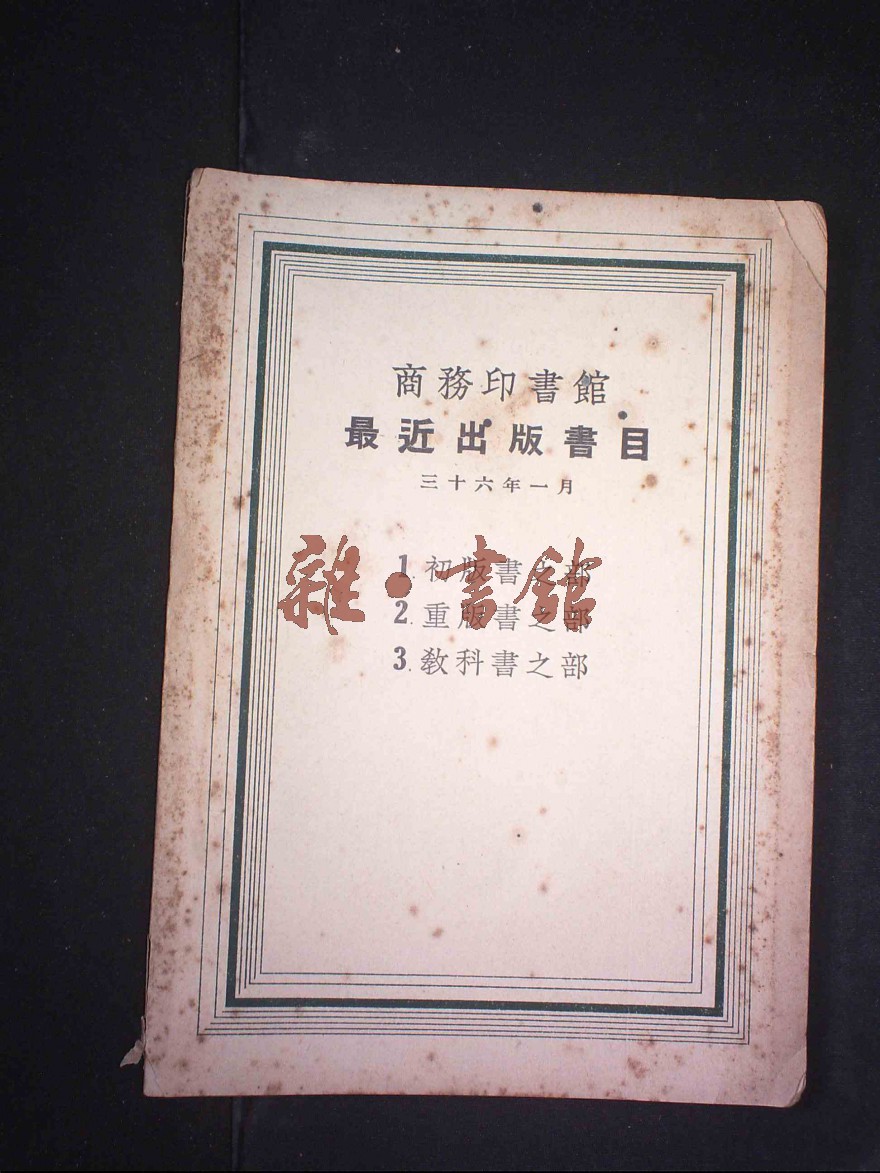 商務印書館
最近出版書目
三十六年一月
1. 初版書之部
2. 重版書之部
3. 教科書之部
雜·書館